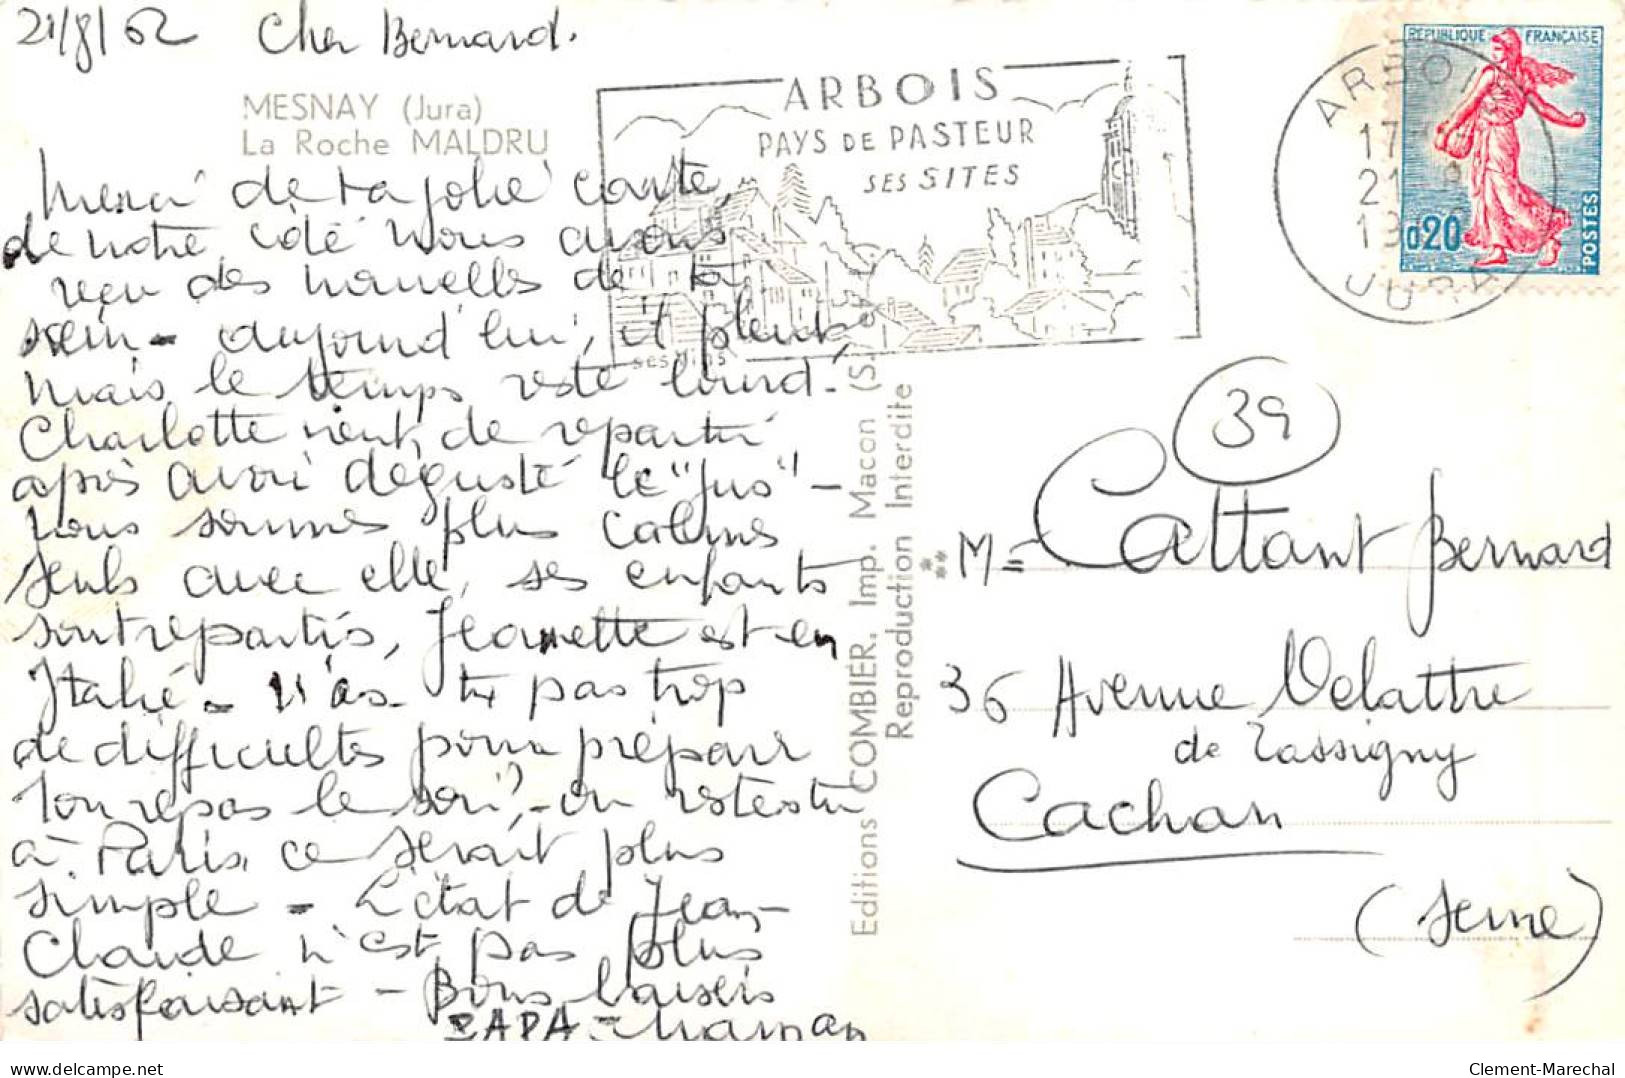 21/8/62 Cher Bernard.
MESNAY (Jura)
La Roche MALDRU
Merci de ta jolie carte,
de notre côté nous avons
reçu des nouvelles de ta
- aujourd'hui, il pleut,
mais le temps reste lourd -
Charlotte vient de repartir
après avoir dégusté le "Jus" -
nous sommes plus calmes
seuls avec elle, ses enfants
sont repartis, Jeannette est en
Italie - N'as-tu pas trop
de difficultés pour préparer
ton repas le soir? - en restant
à Paris, ce serait plus
simple - L'état de Jean-
Claude n'est pas plus
satisfaisant - Bons baisers
PAPA - Maman
ARBOIS
PAYS DE PASTEUR
SES SITES
ses vins
Editions COMBIER, Imp. Macon (S.-et-L.)
Reproduction Interdite
RÉPUBLIQUE FRANÇAISE
0,20
POSTES
ARBOIS
17
21 8
19
JURA
39
M= Cattant Bernard
36 Avenue Delattre
de Tassigny
Cachan
(Seine)
delcampe.net
Clement-Marechal